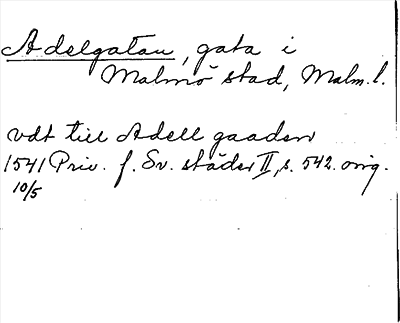 Adelgatan, gata i
Malmö stad, Malm. l.
vdt till Adell gaaden
1541 Priv. f. Sv. städer II, s. 542. orig.
10/5